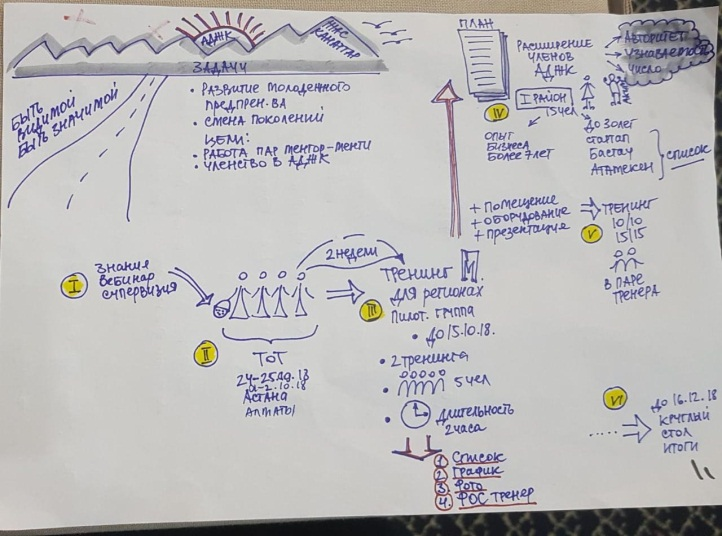 АДЖК
ЖАС
КАНАТТАР
ЗАДАЧИ
БЫТЬ
ВИДИМОЙ
БЫТЬ ЗНАЧИМОЙ
• РАЗВИТИЕ МОЛОДЕЖНОГО
ПРЕДПРЕН-ВА
• СМЕНА ПОКОЛЕНИЙ
ЦЕЛИ:
• РАБОТА ПАР МЕНТОР-МЕНТИ
• ЧЛЕНСТВО В АДЖК
ПЛАН
IV
РАСШИРЕНИЕ
ЧЛЕНОВ
АДЖК
АВТОРИТЕТ
УЗНАВАЕМОСТЬ
ЧИСЛО
I РАЙОН
15 ЧЕЛ
ОПЫТ
БИЗНЕСА
БОЛЕЕ 7 ЛЕТ
ДО 30 ЛЕТ
СТАРТАП
БАСТАУ
АТАМЕКЕН
СПИСОК
+ ПОМЕЩЕНИЕ
+ ОБОРУДОВАНИЕ
+ ПРЕЗЕНТАЦИЯ
V
ТРЕНИНГ
10/10
15/15
В ПАРЕ
ТРЕНЕРА
I
ЗНАНИЯ
ВЕБИНАР
СУПЕРВИЗИЯ
2 НЕДЕЛИ
II
ТОТ
24-25.09.18
1-2.10.18
АСТАНА
АЛМАТЫ
III
ТРЕНИНГ М.
ДЛЯ РЕГИОНАХ
ПИЛОТ. ГРУППА
• ДО 15.10.18.
• 2 ТРЕНИНГА
• 5 ЧЕЛ
• ДЛИТЕЛЬНОСТЬ
2 ЧАСА
1. СПИСОК
2. ГРАФИК
3. ФОТО
4. ФОС ТРЕНЕР
VI
ДО 16.12.18
КРУГЛЫЙ
СТОЛ
ИТОГИ